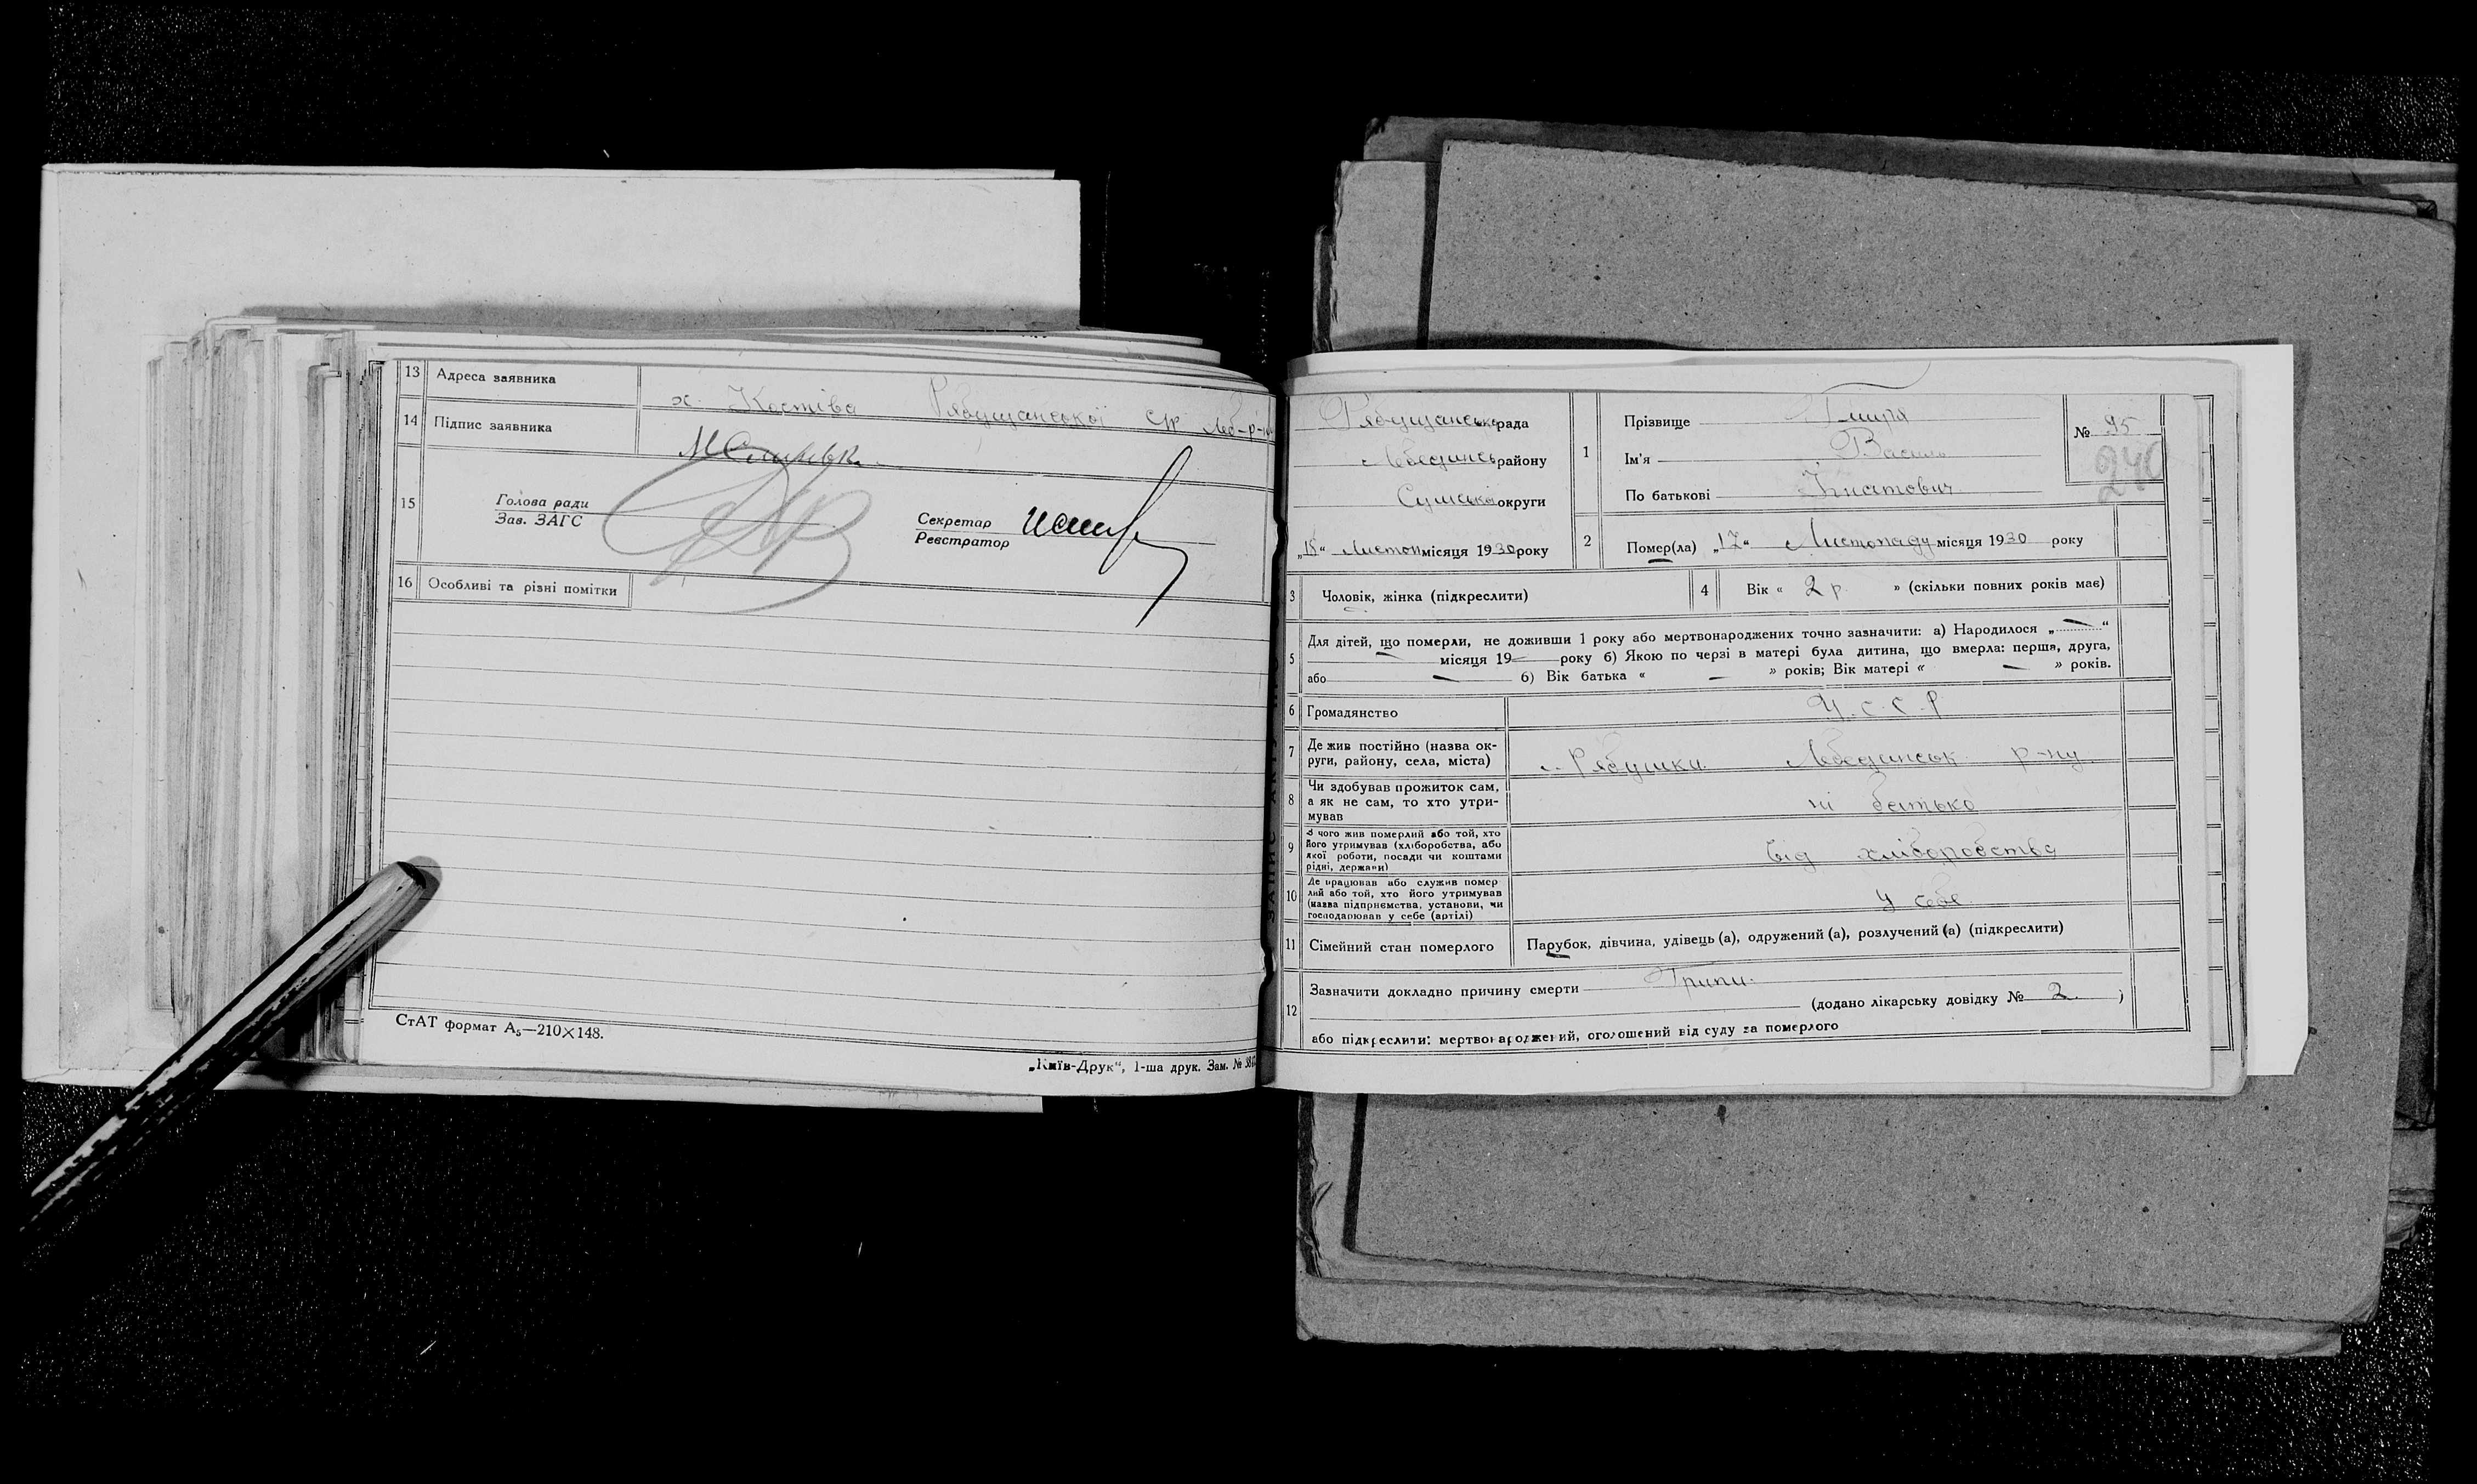 13 Адреса заявника х. Костіва Рябушанської с/р Леб-р-ну
14 Підпис заявника
15 Голова ради
Зав. ЗАГС
Секретар
Реєстратор
16 Особливі та різні помітки
СтАТ формат А₅—210×148.
„Київ-Друк“, 1-ша друк. Зам. №
Рябушанська рада
Лебединськ району
Сумської округи
„18“ Листоп місяця 1930 року
1 Прізвище Гмиря
Ім'я Василь
По батькові Гнатович
№ 95
240
2 Помер(ла) „17“ Листопаду місяця 1930 року
3 Чоловік, жінка (підкреслити)
4 Вік « 2 р » (скільки повних років має)
5 Для дітей, що померли, не доживши 1 року або мертвонароджених точно зазначити: а) Народилося „ — “
— місяця 19— року б) Якою по черзі в матері була дитина, що вмерла: перша, друга,
або — б) Вік батька « — » років; Вік матері « — » років.
6 Громадянство У.С.С.Р
7 Де жив постійно (назва ок-
руги, району, села, міста) с. Рябушки Лебединськ р-ну
8 Чи здобував прожиток сам,
а як не сам, то хто утри-
мував ні батько
9 З чого жив померлий або той, хто
його утримував (хліборобства, або
якої роботи, посади чи коштами
рідні, держави) від хліборобства
10 Де працював або служив помер
лий або той, хто його утримував
(назва підприємства, установи, чи
господарював у себе (артілі) у себе
11 Сімейний стан померлого Парубок, дівчина, удівець (а), одружений (а), розлучений (а) (підкреслити)
12 Зазначити докладно причину смерти Грипи.
(додано лікарську довідку № 2. )
або підкреслити: мертвонароджений, оголошений від суду за померлого